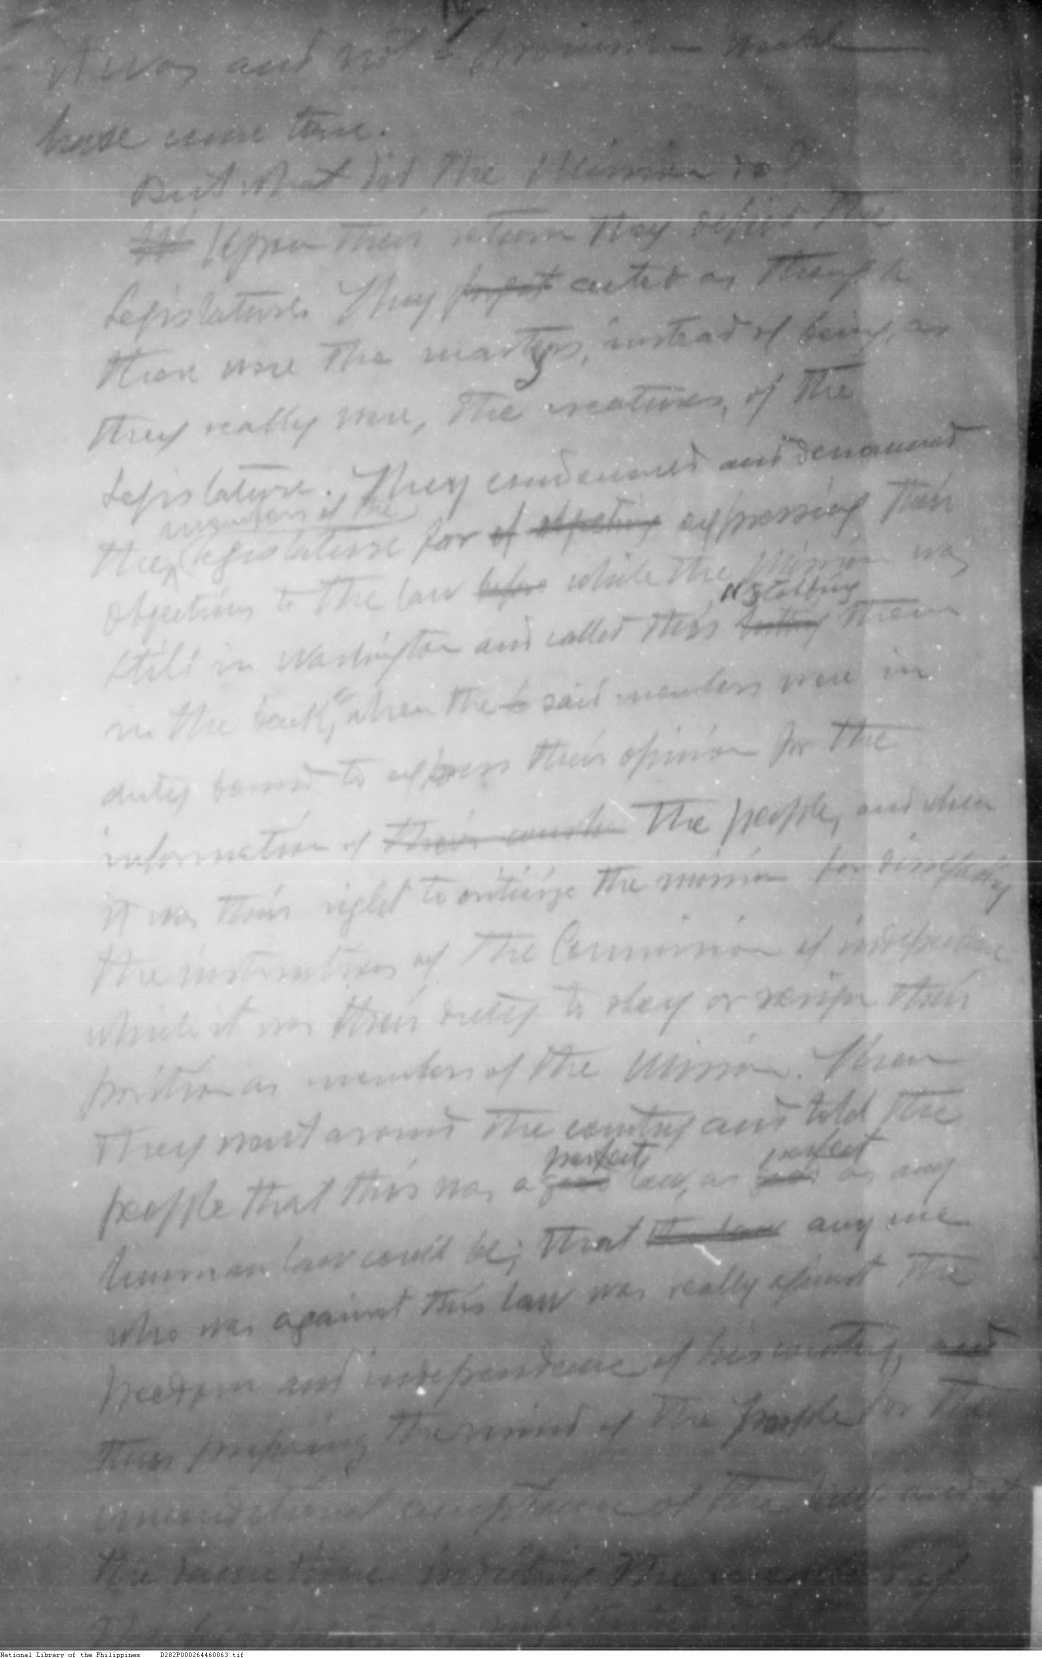 it was and not a division would
have come true.
But what did the Mission do?
Upon their return they defied the
Legislature. They forgot acted as though
there were the martyrs, instead of being, as
they really were, the creatures, of the
Legislature. They condemned and denounced
members of the
the Legislature for of objecting expressing their
objections to the law before while the Mission was
stabbing
still in Washington and called this hitting them
in the back, when the said members were in
duty bound to express their opinion for the
information of their the people, and when
it was their right to criticize the mission for disobeying
the instructions of the Commission of independence
which it was their duty to obey or resign their
position as members of the Mission. Then
they went around the country and told the
perfect perfect
people that this was a good law, as good as any
human law could be; that the law any one
who was against this law was really against the
freedom and independence of his country, and
thus preparing the mind of the people for the
unconditional acceptance of the law and at
the same time the members of